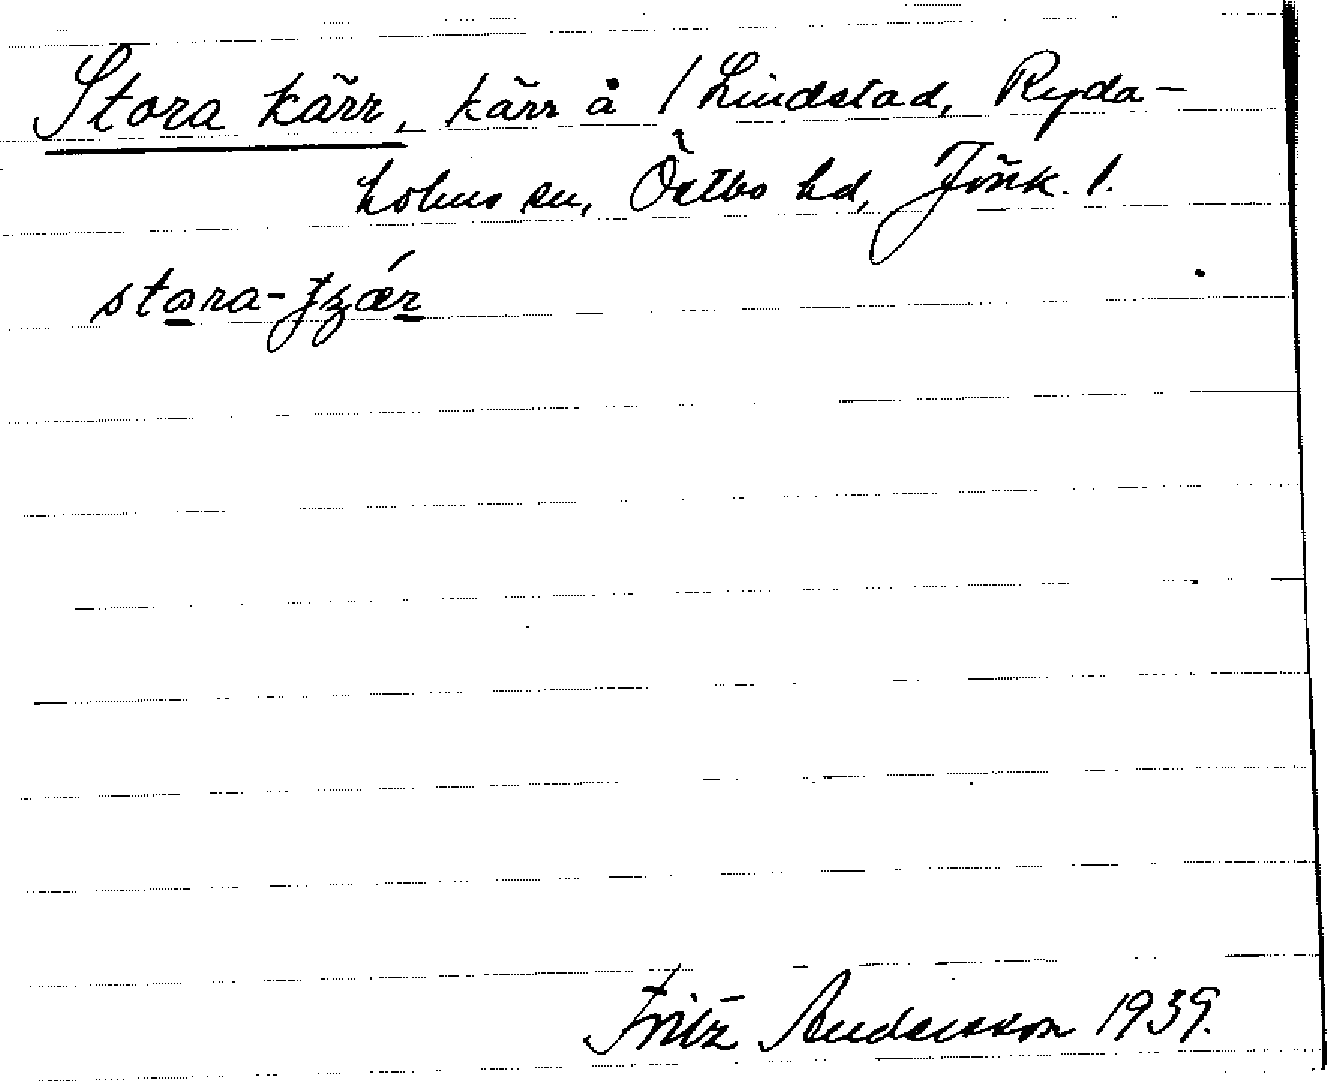 Stora kärr, kärr å / Lindstad, Ryda-
holms sn, Östbo hd, Jönk. l.
stara-tʒǽr
Fritz Andersson 1939.